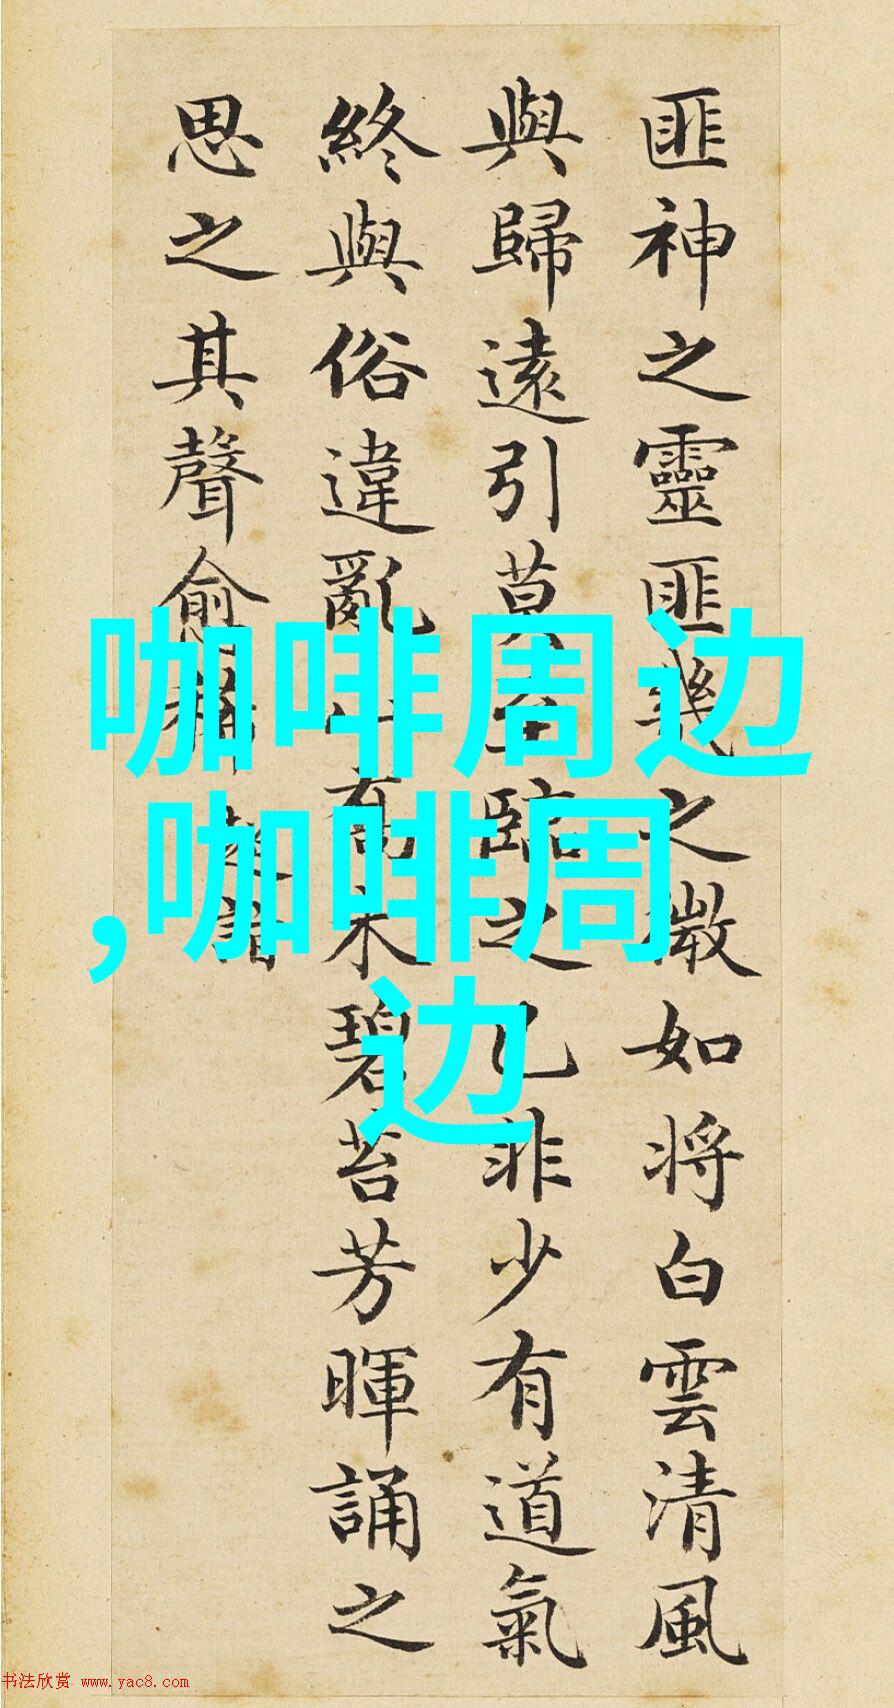 匪神之靈匪幾之微如将白雲清風
與歸遠引莫至臨之已非少有道氣
終與俗違亂山喬木碧苔芳暉誦之
思之其聲愈稀
咖啡周边
,咖啡周
边
书法欣赏 www.yac8.com